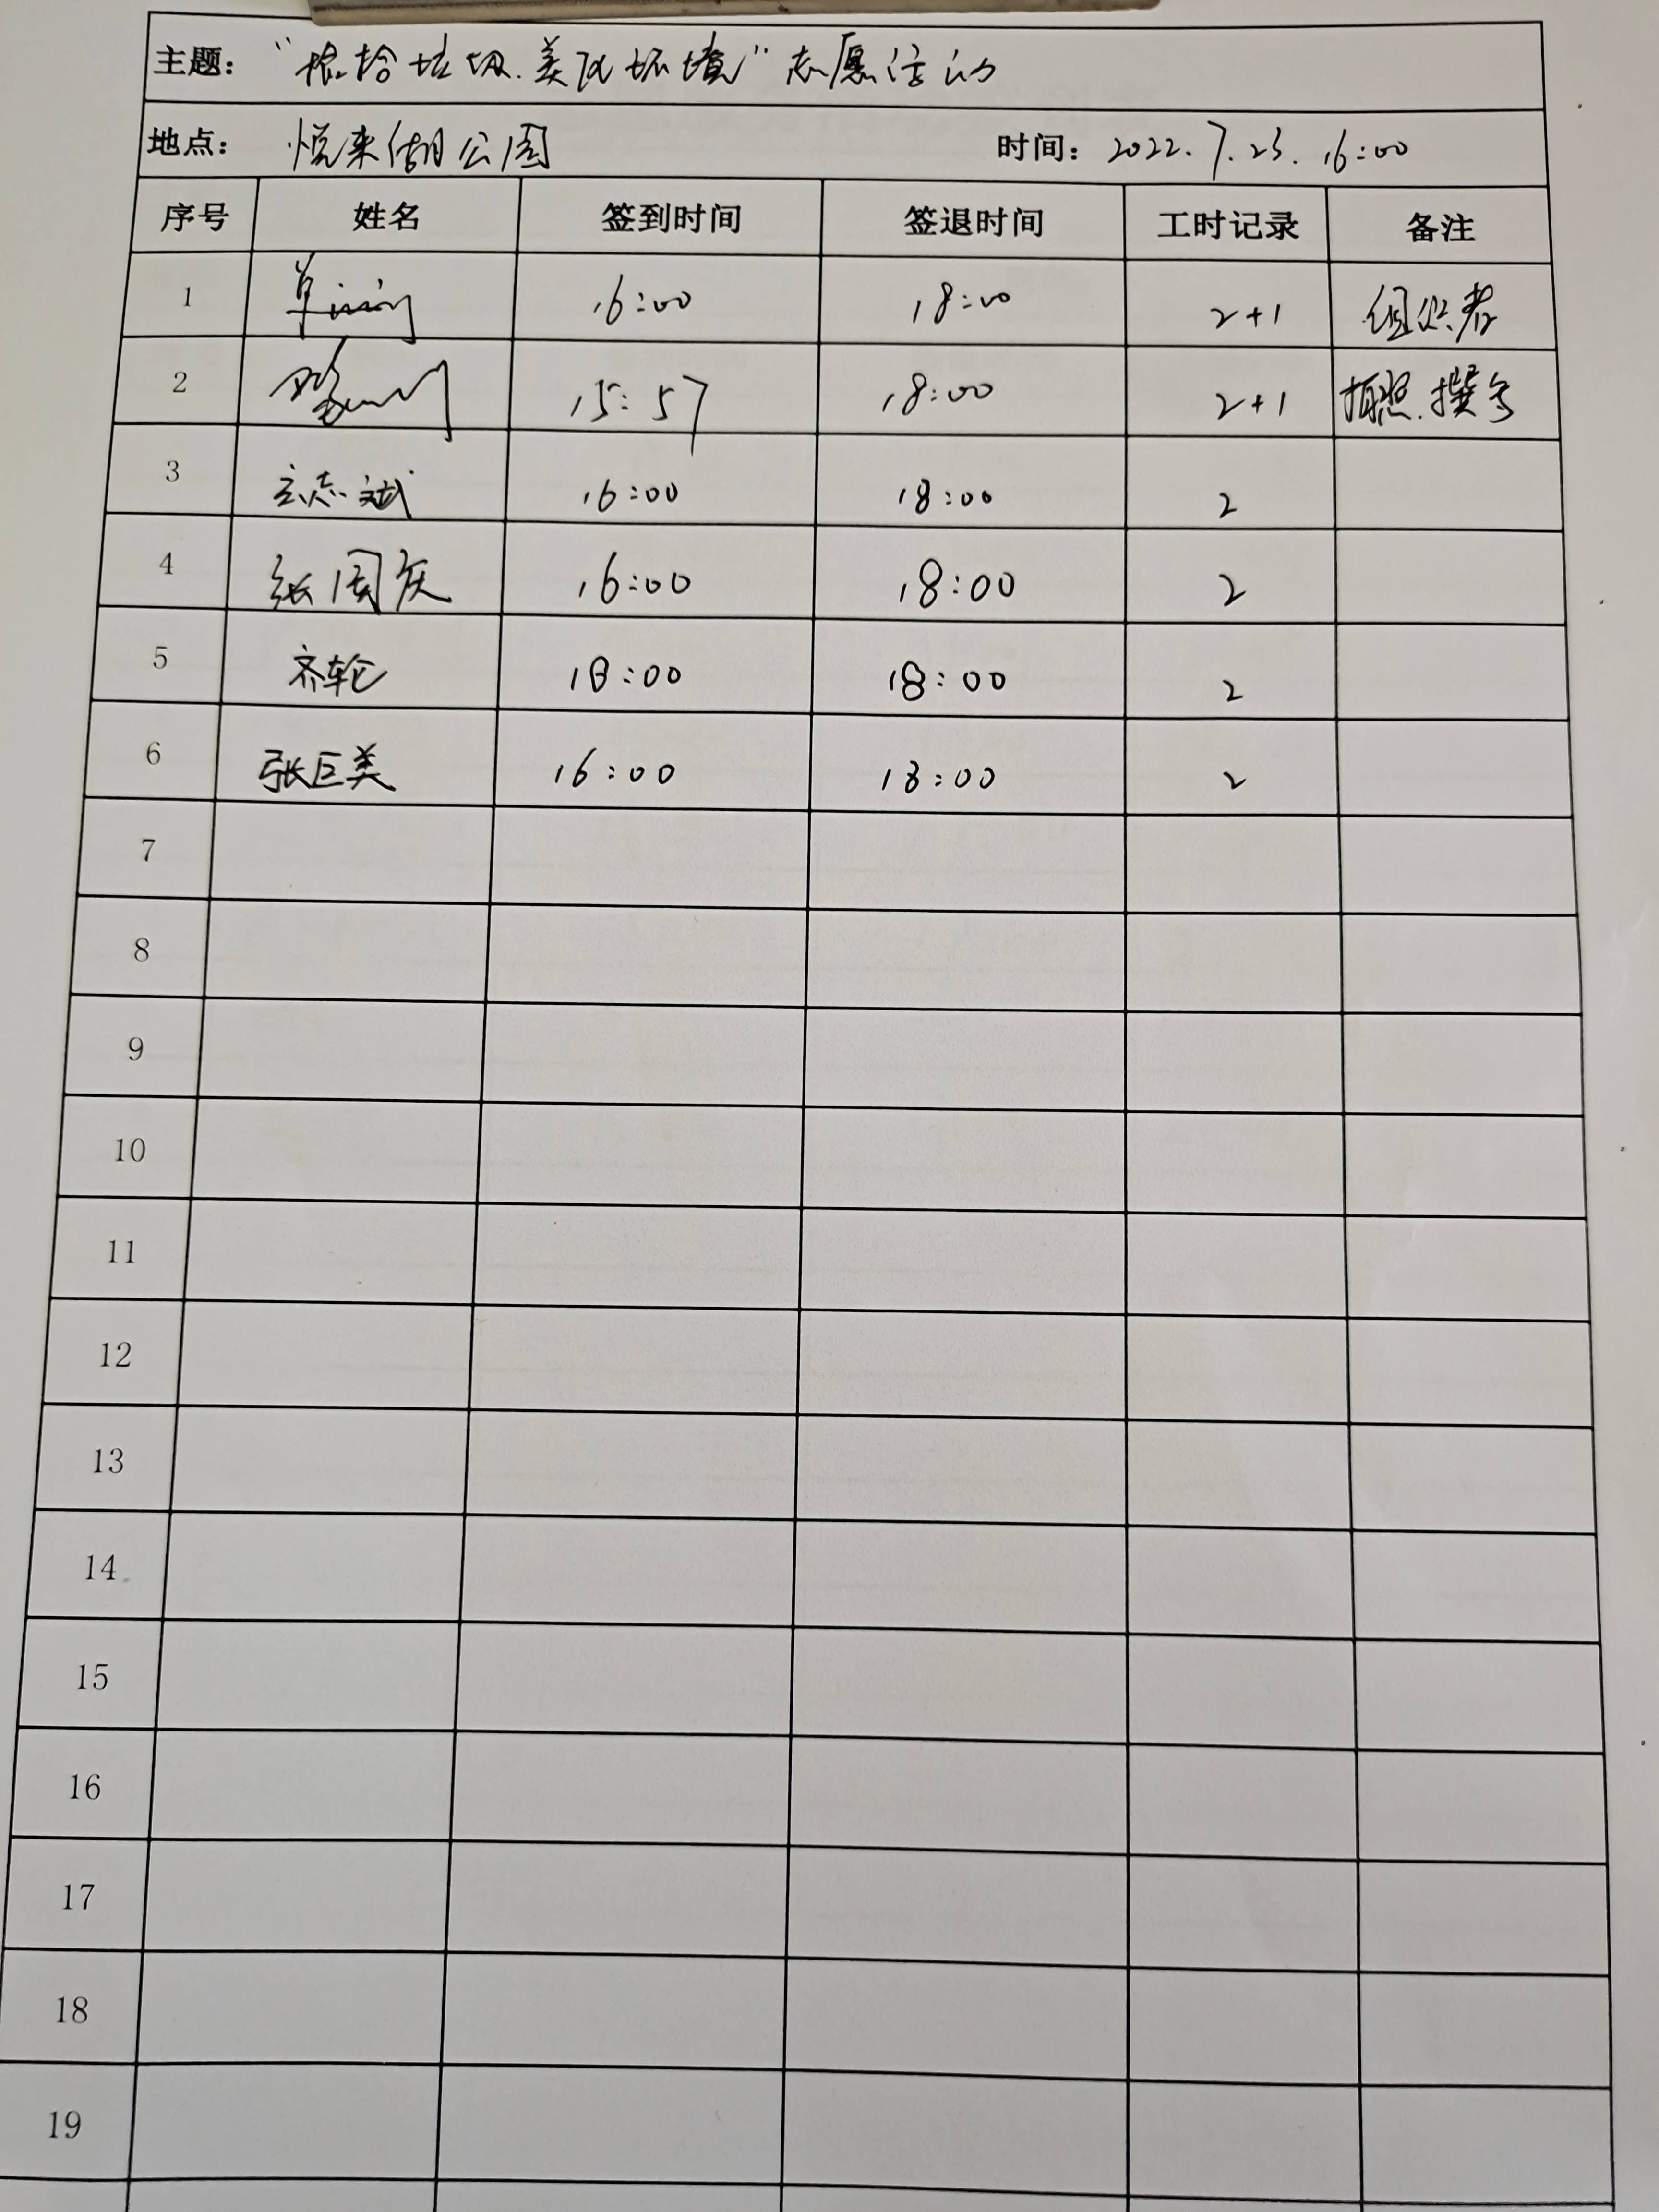 主题： “捡拾垃圾.美化环境”志愿活动
地点： 悦来湖公园 时间：2022.7.23. 16:00
序号 姓名 签到时间 签退时间 工时记录 备注
1 16:00 18:00 2+1 组织者
2 15:57 18:00 2+1 拍照.撰写
3 16:00 18:00 2
4 张国庆 16:00 18:00 2
5 齐轮 18:00 18:00 2
6 张巨美 16:00 18:00 2
7
8
9
10
11
12
13
14
15
16
17
18
19